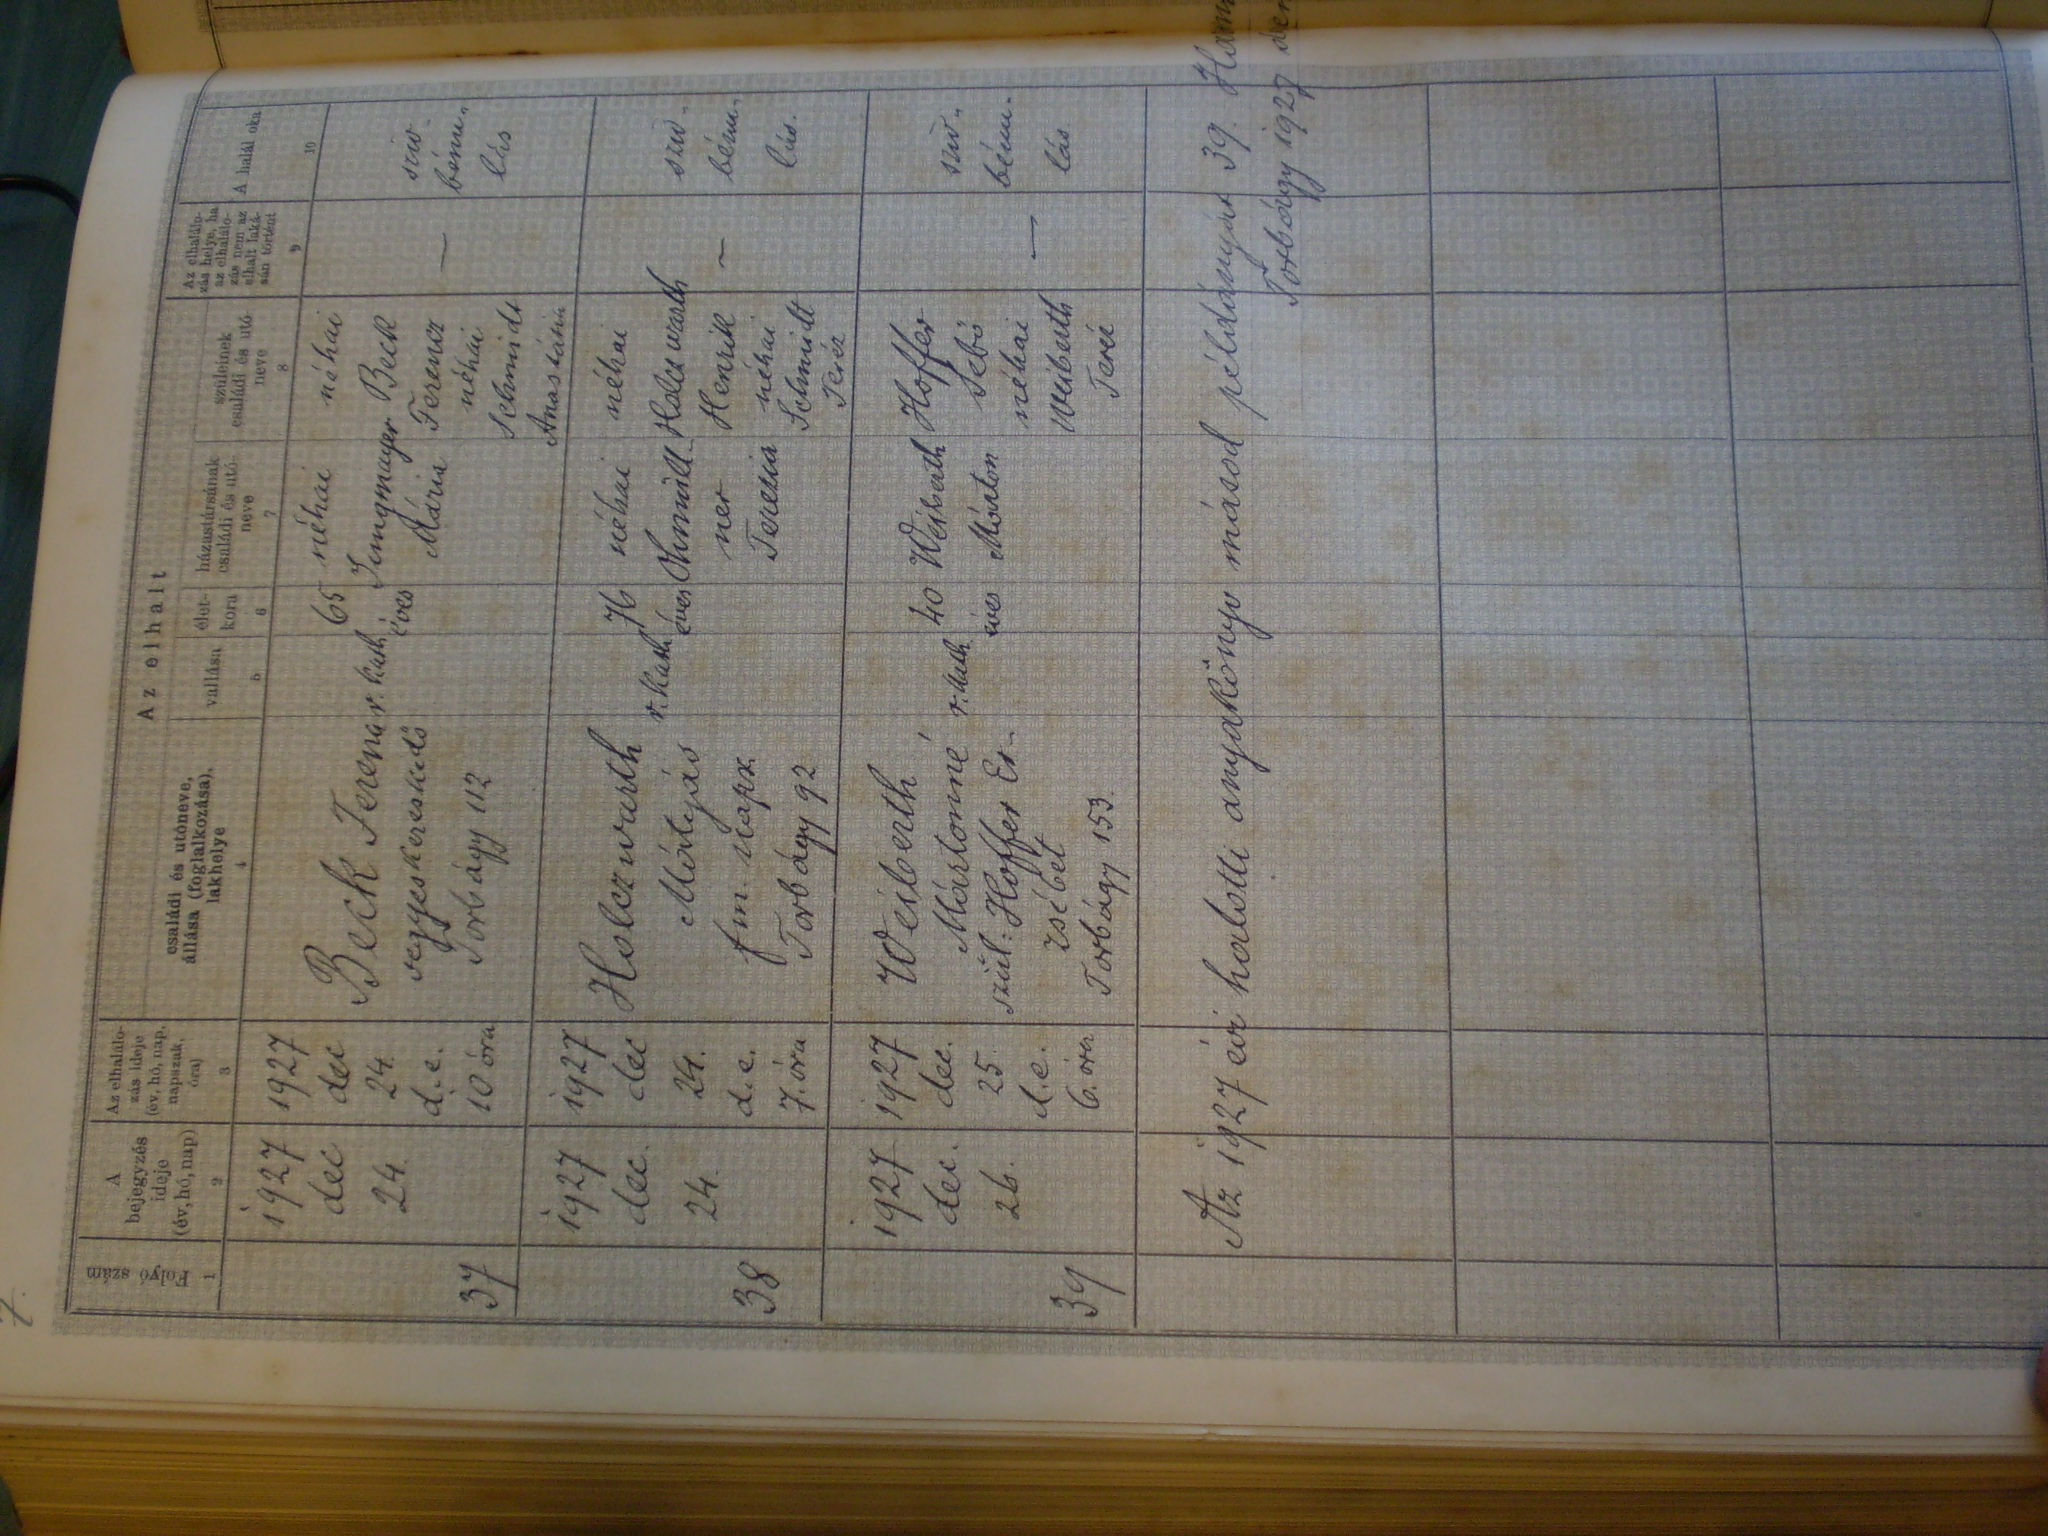 7.
Az elhalt
Folyó szám
A bejegyzés ideje (év, hó, nap)
Az elhalálo-
zás ideje
(év, hó, nap,
napszak,
óra)
családi és utóneve,
állása (foglalkozása),
lakhelye
vallása
élet-
kora
házastársának
családi és utó-
neve
szüleinek
családi és utó-
neve
Az elhalálo-
zás helye, ha
az elhalálo-
zás nem az
elhalt laká-
sán történt
A halál oka
1 2 3 4 5 6 7 8 9 10
37
1927
dec
24.
1927
dec
24.
d.e.
10 óra
Beck Ferenc
vegyeskereskedő
Torbágy 112
r. kath.
65
éves
néhai
Jungmayer
Mária
néhai
Beck
Ferencz
néhai
Schmidt
Anastásia
—
szív-
bénu-
lás
38
1927
dec.
24.
1927
dec
24.
d.e.
7. óra
Holczwarth
Mátyás
fm. napsz
Torbágy 92
r. kath
76
éves
néhai
Ohmüll-
ner
Terézia
néhai
Holczwarth
Henrik
néhai
Schmidt
Teréz
—
szív-
bénu-
lás.
39
1927
dec.
26.
1927
dec.
25
d.e.
6. óra
Weiberth
Mártonné
szül: Hoffer Er-
zsébet
Torbágy 153.
r. kath
40
éves
Weiberth
Márton
Hoffer
Sebő
néhai
Weiberth
Teréz
—
szív-
bénu-
lás
Az 1927 évi halotti anyakönyv másod példányát 39.
Torbágy 1927